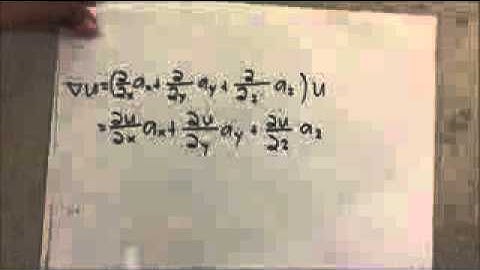 ∇u=(∂/∂x aₓ+ ∂/∂y a_y+ ∂/∂z a_z)u
=∂u/∂x aₓ+ ∂u/∂y a_y + ∂u/∂z a_z